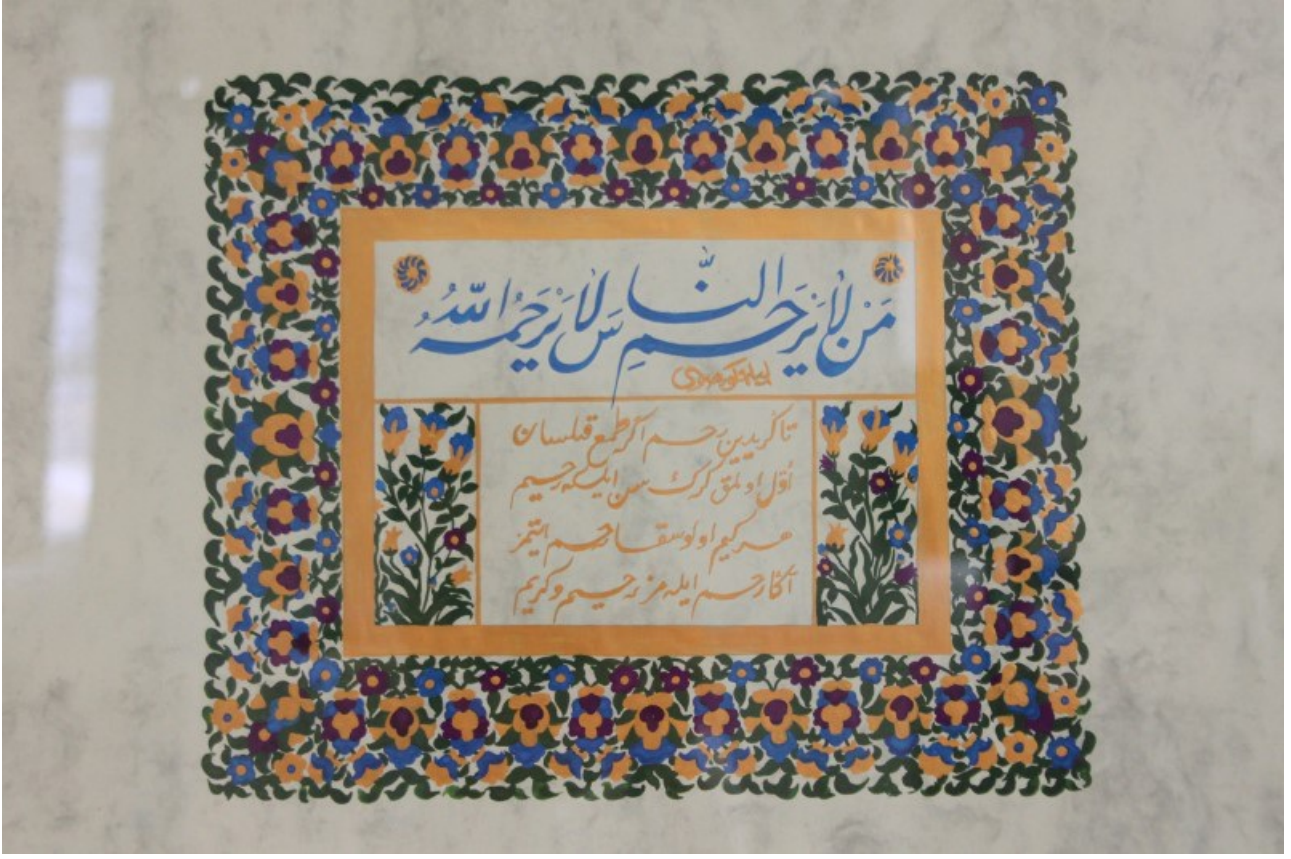 مَنْ لَا يَرْحَمِ النَّاسَ لَا يَرْحَمُهُ اللّٰهُ
تاكريدين رحم اكر طمع قیلسان
اوّل اولمق كرك سن ایلكه رحیم
هر كیم اولوسقا رحم ایتمز
آكا رحم ایله‌مز رحیم و كریم